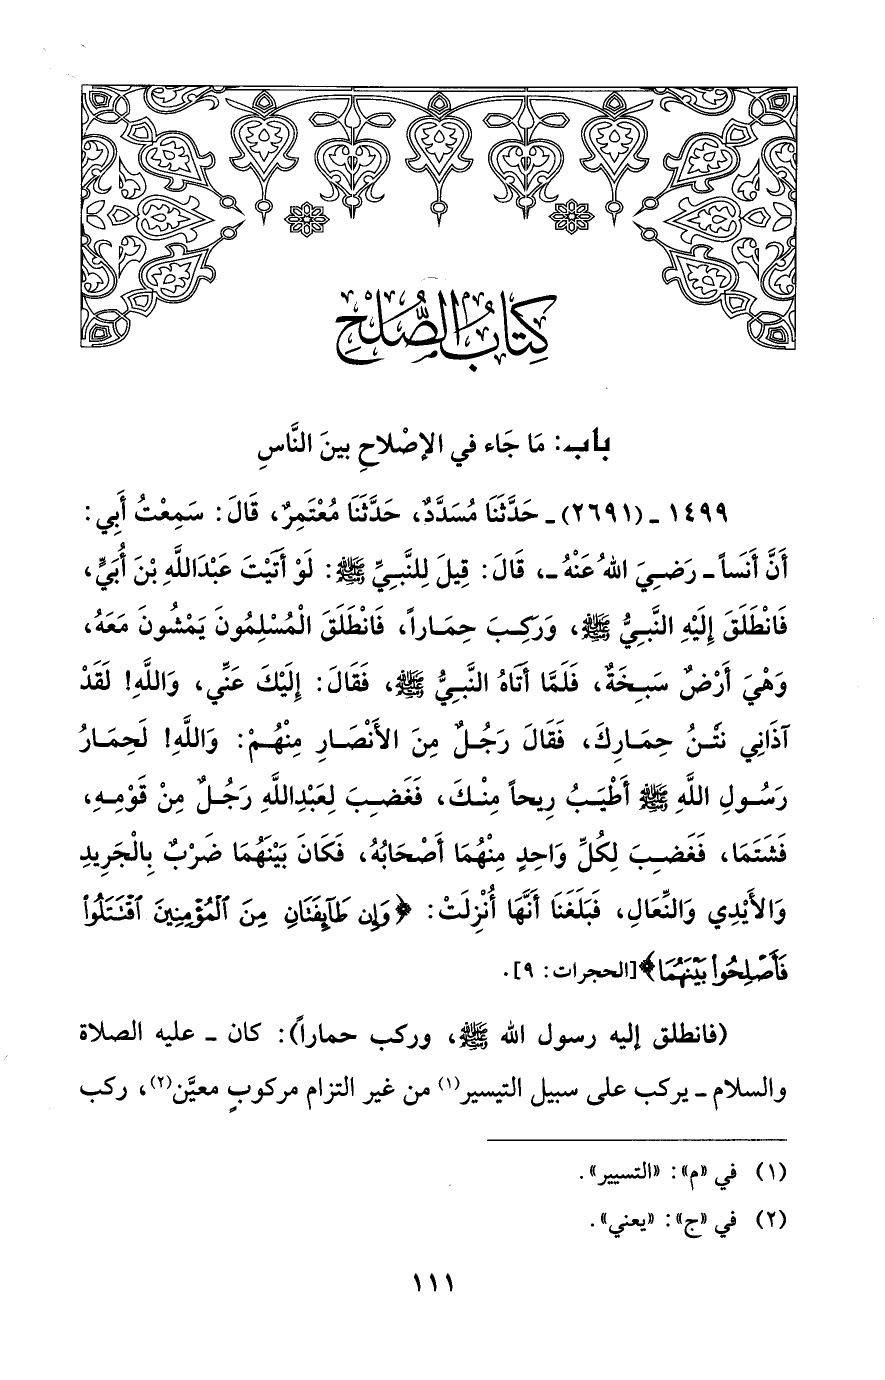 كِتَابُ الصُّلْحِ
باب: مَا جَاء في الإصْلاحِ بينَ النَّاسِ
١٤٩٩ ـ (٢٦٩١) ـ حَدَّثَنَا مُسَدَّدٌ، حَدَّثَنَا مُعْتَمِرٌ، قَالَ: سَمِعْتُ أَبِي:
أَنَّ أَنَساً ـ رَضِيَ اللهُ عَنْهُ ـ، قَالَ: قِيلَ لِلنَّبِيِّ ﷺ: لَوْ أَتَيْتَ عَبْدَاللَّهِ بْنَ أُبَيٍّ،
فَانْطَلَقَ إِلَيْهِ النَّبِيُّ ﷺ، وَرَكِبَ حِمَاراً، فَانْطَلَقَ الْمُسْلِمُونَ يَمْشُونَ مَعَهُ،
وَهْيَ أَرْضٌ سَبِخَةٌ، فَلَمَّا أَتَاهُ النَّبِيُّ ﷺ، فَقَالَ: إِلَيْكَ عَنِّي، وَاللَّهِ! لَقَدْ
آذَانِي نَتْنُ حِمَارِكَ، فَقَالَ رَجُلٌ مِنَ الأَنْصَارِ مِنْهُمْ: وَاللَّهِ! لَحِمَارُ
رَسُولِ اللَّهِ ﷺ أَطْيَبُ رِيحاً مِنْكَ، فَغَضِبَ لِعَبْدِاللَّهِ رَجُلٌ مِنْ قَوْمِهِ،
فَشَتَمَا، فَغَضِبَ لِكُلِّ وَاحِدٍ مِنْهُمَا أَصْحَابُهُ، فَكَانَ بَيْنَهُمَا ضَرْبٌ بِالْجَرِيدِ
وَالأَيْدِي وَالنِّعَالِ، فَبَلَغَنَا أَنَّهَا أُنْزِلَتْ: ﴿وَإِن طَآئِفَتَانِ مِنَ ٱلْمُؤْمِنِينَ ٱقْتَتَلُوا۟
فَأَصْلِحُوا۟ بَيْنَهُمَا﴾ [الحجرات: ٩].
(فانطلق إليه رسول الله ﷺ، وركب حماراً): كان ـ عليه الصلاة
والسلام ـ يركب على سبيل التيسير(١) من غير التزام مركوبٍ معيَّن(٢)، ركب
(١) في «م»: «التسيير».
(٢) في «ج»: «يعني».
١١١